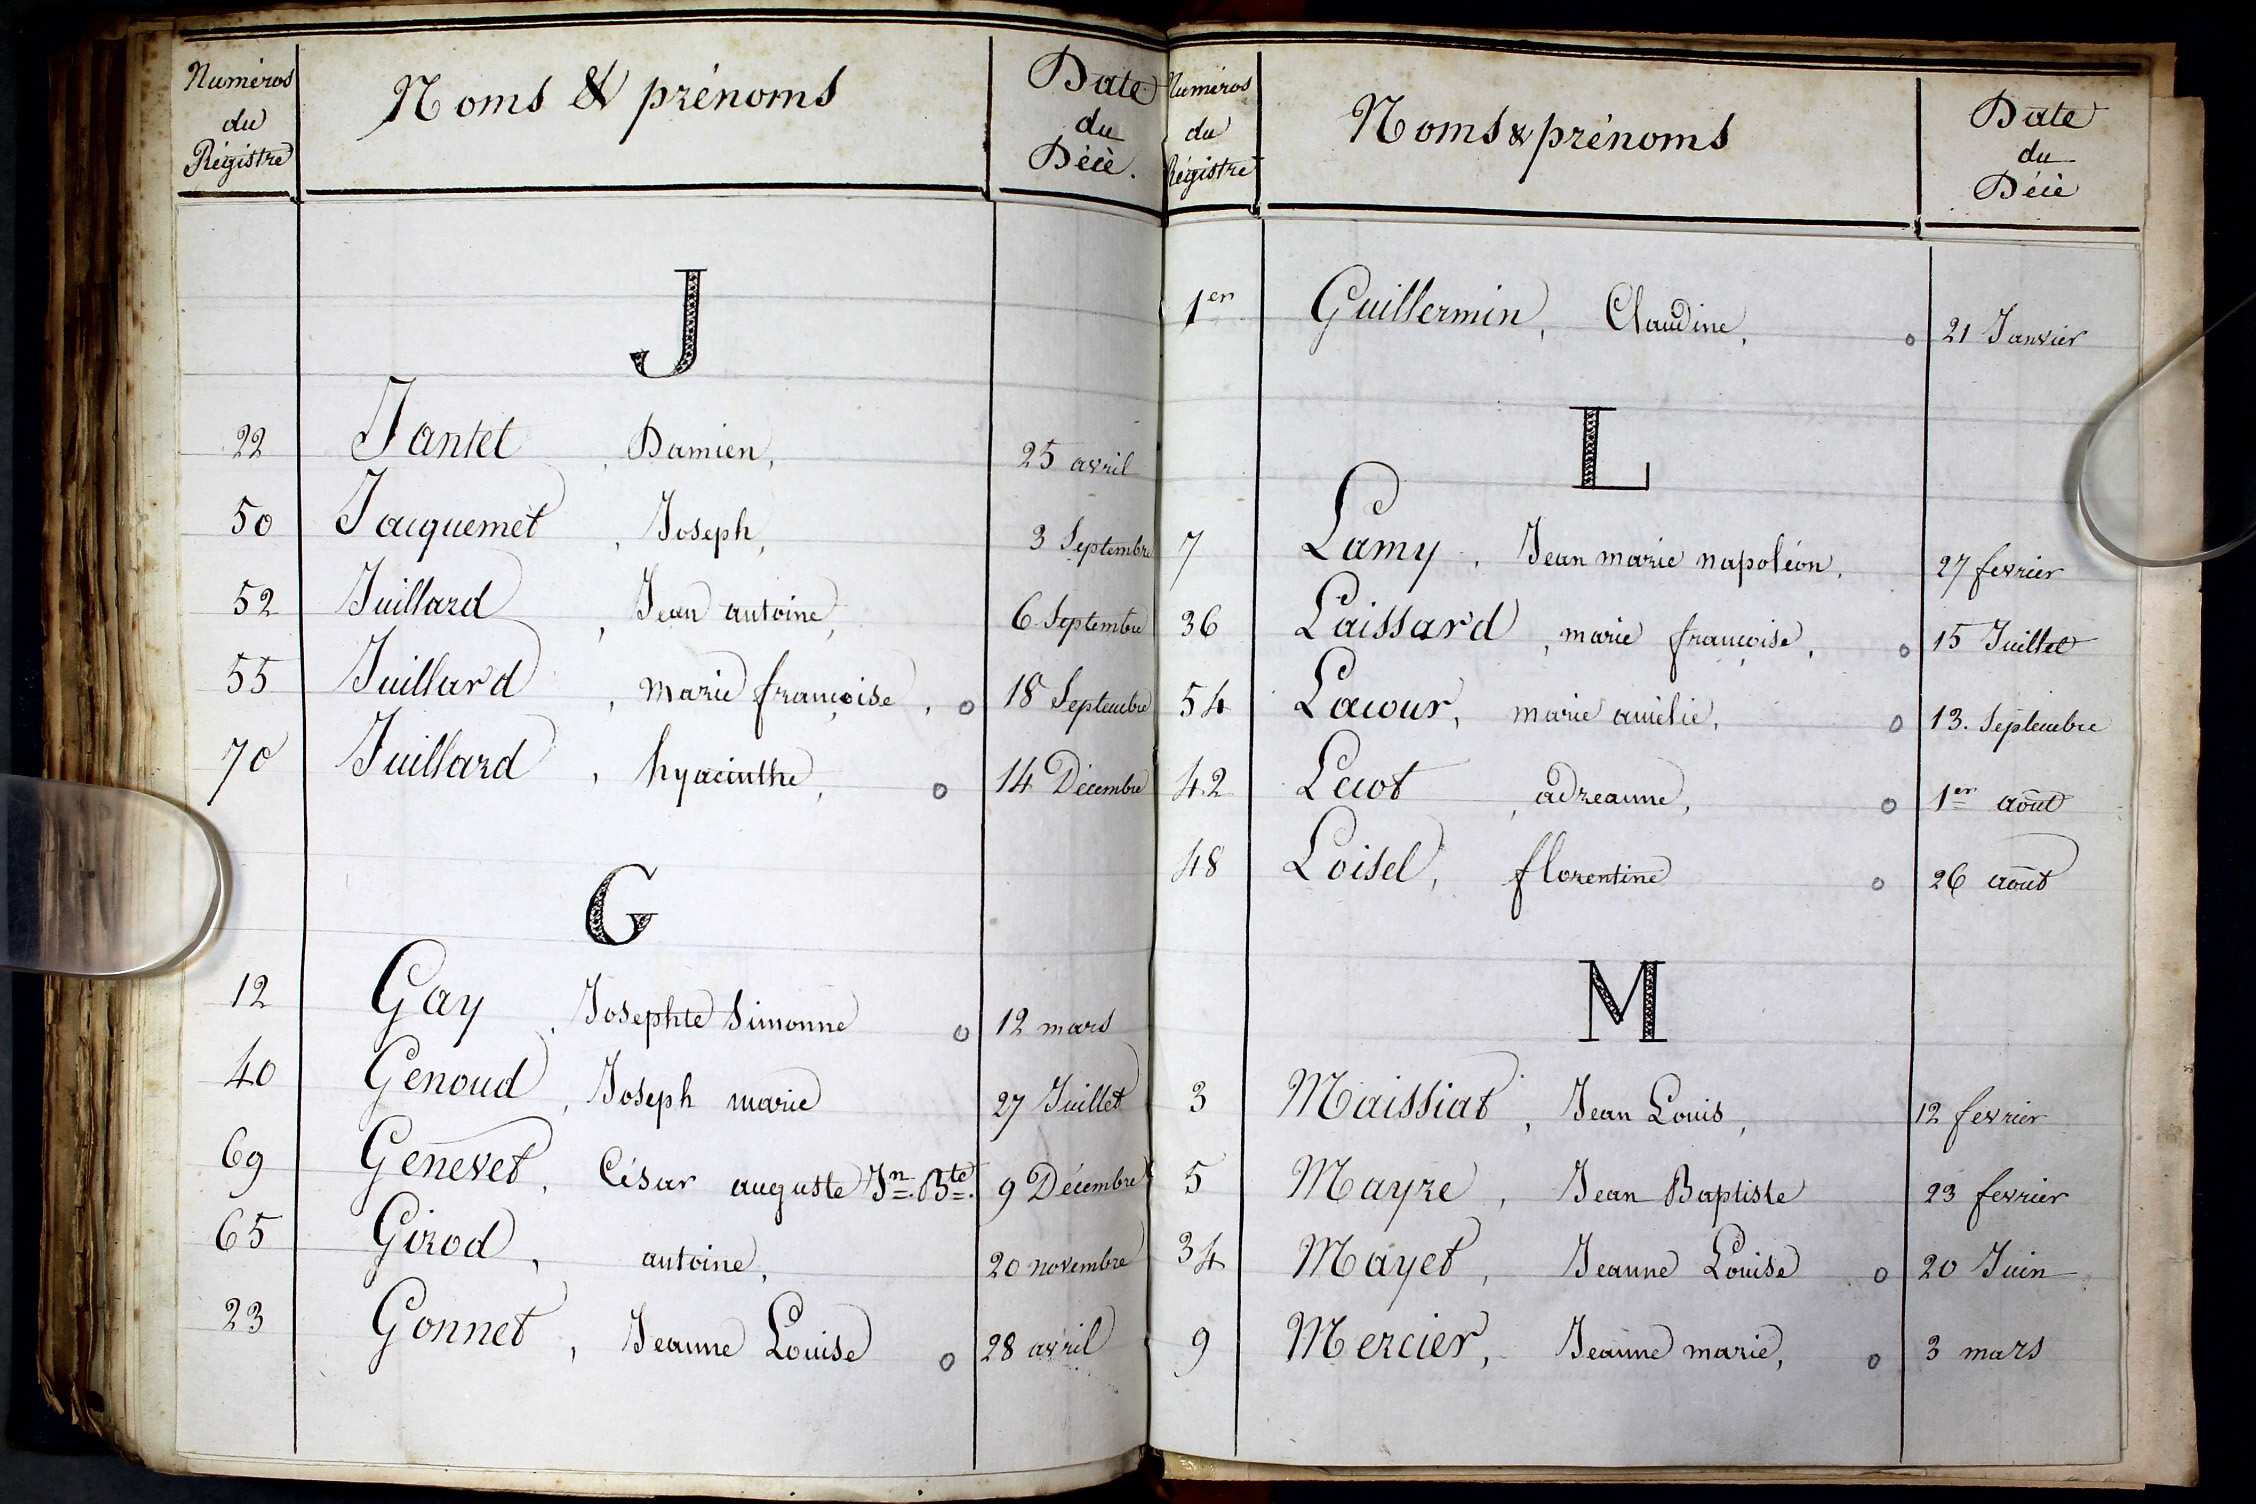 Numéros
du
Régistre
Noms & prénoms
Date
du
Décè.
J
22 Jantet, Damien, 25 avril
50 Jacquemet, Joseph, 3 Septembre
52 Juillard, Jean antoine, 6 Septembre
55 Juillard, marie françoise, o 18 Septembre
70 Juillard, hyacinthe, o 14 Décembre
G
12 Gay, Josephte Simonne o 12 mars
40 Genoud, Joseph marie 27 Juillet
69 Genevet, César auguste Jn. Bte. 9 Décembre
65 Girod, antoine, 20 novembre
23 Gonnet, Jeanne Louise o 28 avril
Numéros
du
Régistre
Noms & prénoms
Date
du
Décè
1er Guillermin, Claudine, o 21 Janvier
L
7 Lamy, Jean marie napoléon, 27 fevrier
36 Laissard, marie françoise, o 15 Juillet
54 Lacour, marie amélie, o 13. Septembre
42 Lecot, adreanne, o 1er août
48 Loisel, florentine o 26 août
M
3 Maissiat, Jean Louis, 12 fevrier
5 Mayre, Jean Baptiste 23 fevrier
34 Mayet, Jeanne Louise o 20 Juin
9 Mercier, Jeanne marie, o 3 mars